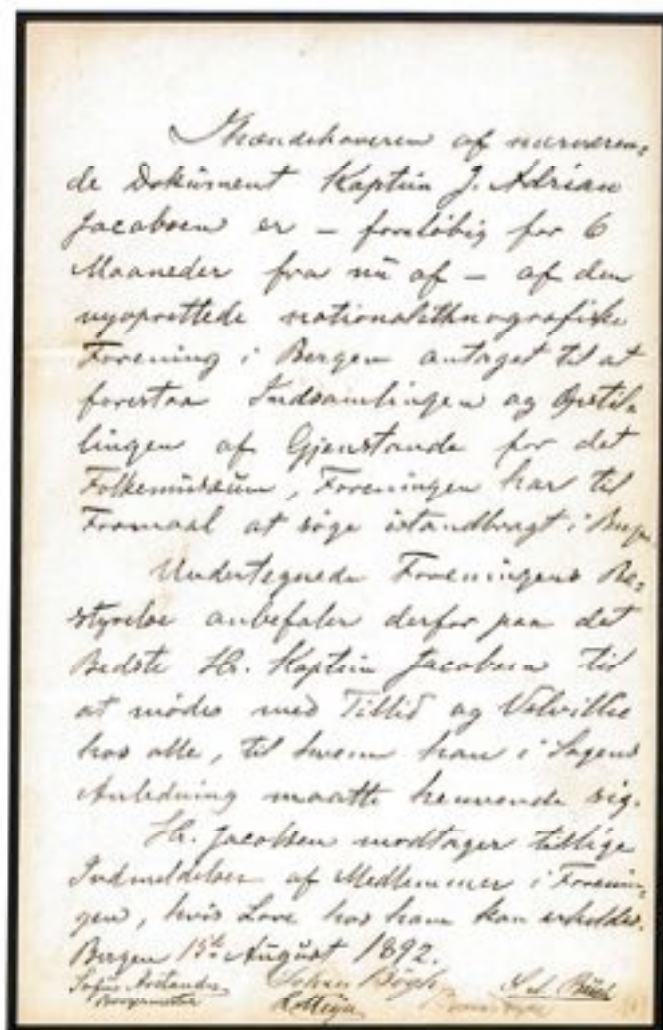 Ihændehaveren af nærværen-
de Dokument Kaptein J. Adrian
Jacobsen er – foreløbig for 6
Maaneder fra nu af – af den
nyoprettede nationalethnografiske
Forening i Bergen antaget til at
forestaa Indsamlingen og Opstil-
lingen af Gjenstande for det
Folkemuseum, Foreningen har til
Formaal at søge istandbragt i
Undertegnede Foreningens Be-
styrelse anbefaler derfor paa det
Bedste Hr. Kaptein Jacobsen til
at mødes med Tillid og Velvillie
hos alle, til hvem han i Sagens
Anledning maatte henvende sig.
Hr. Jacobsen modtager tillige
Indmeldelser af Medlemmer i Forenin-
gen, hvis Love hos ham kan erholdes.
Bergen 15de August 1892.
Johan Bøgh